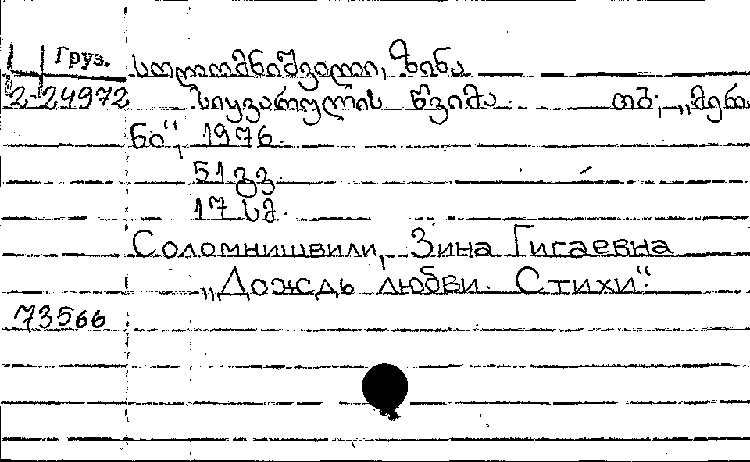 Груз.
სოლომნიშვილი, ზინა
2-24972 სიყვარულის წვიმა. თბ; „მერა
ნი“, 1976.
51 გვ.
17 სმ.
Соломнишвили, Зина Гигаевна
„Дождь любви. Стихи“.
73566